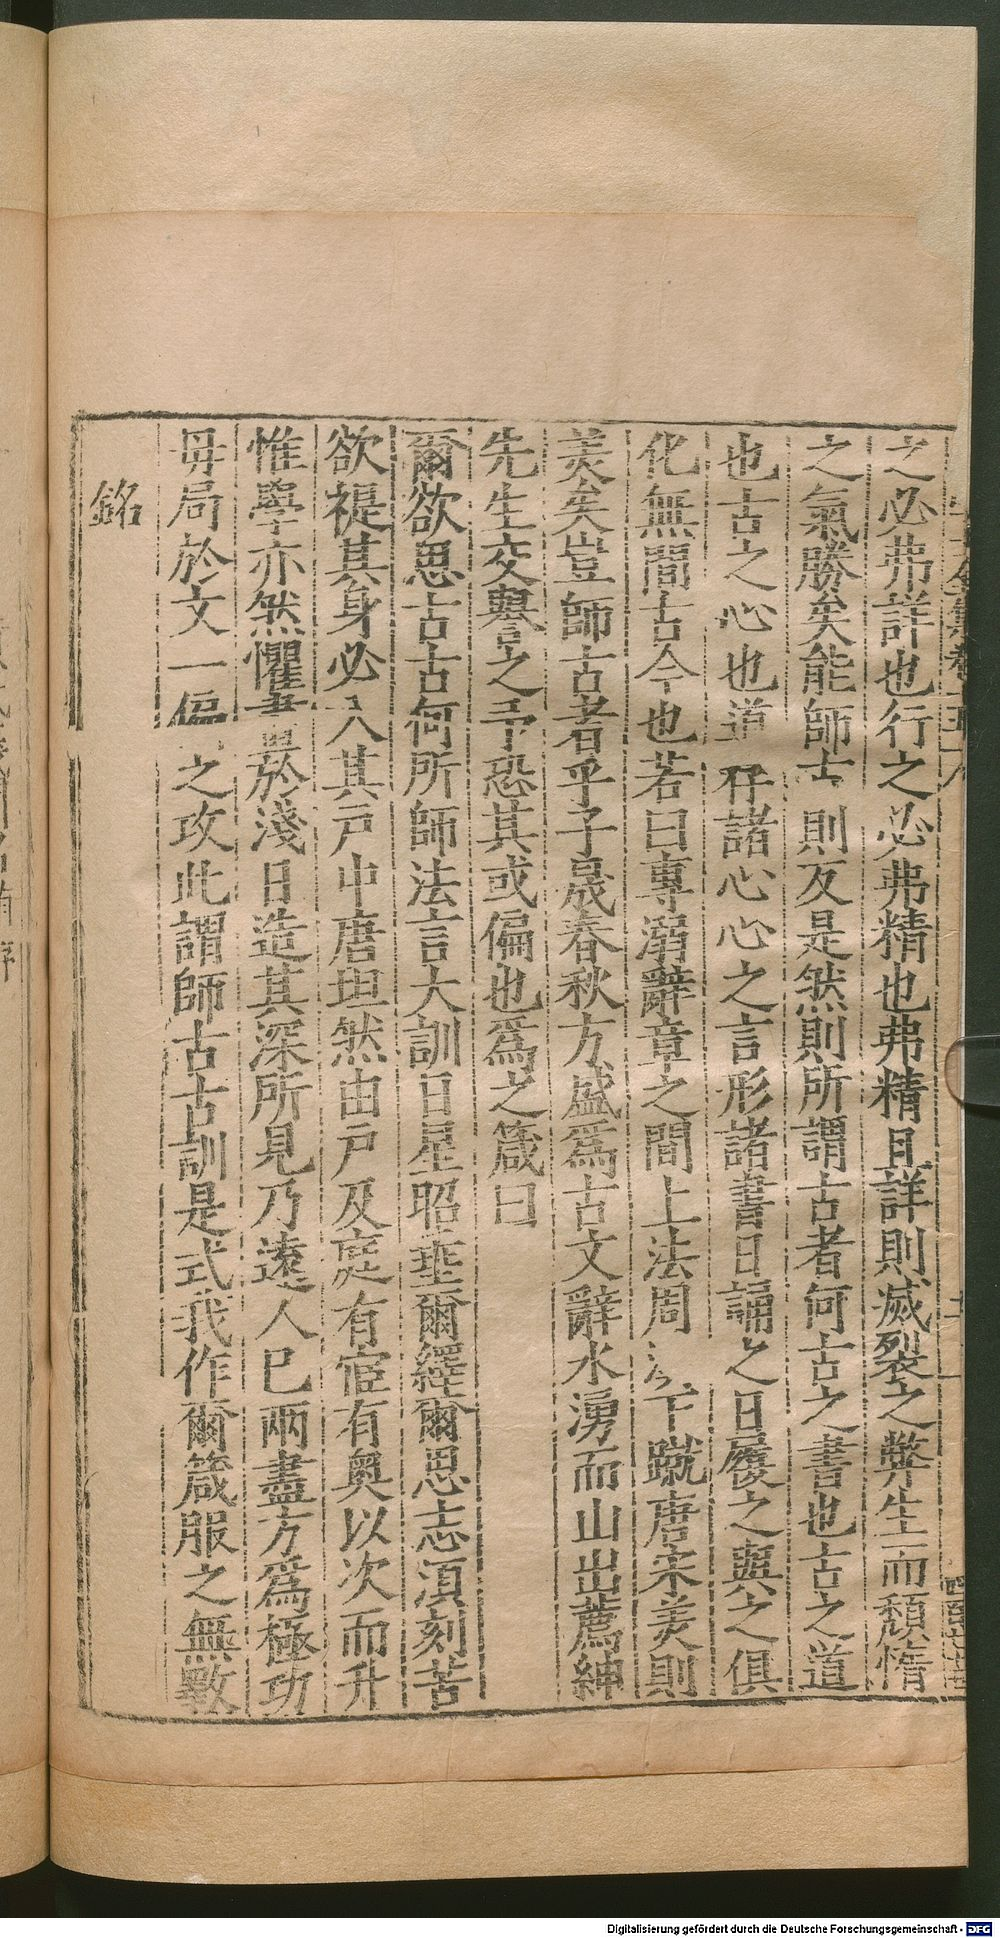 之必弗詳也行之必弗精也弗精且詳則滅裂之弊生而頽惰
之氣勝矣能師古則反是然則所謂古者何古之書也古之道
也古之心也道存諸心心之言形諸書日誦之日履之與之俱
化無間古今也若曰專溺辭章之間上法周漢下蹴唐宋美則
美矣豈師古者乎子晟春秋方盛爲古文辭水湧而山出薦紳
先生交譽之予恐其或偏也爲之箴曰
爾欲思古古何所師法言大訓日星昭垂爾繹爾思志湏刻苦
欲禔其身必入其戸中唐坦然由戸及庭有宧有奧以次而升
惟學亦然懼畫於淺日造其深所見乃遠人巳兩盡方爲極功
毋局於文一偏之攻此謂師古古訓是式我作爾箴服之無斁
銘
Digitalisierung gefördert durch die Deutsche Forschungsgemeinschaft - DFG